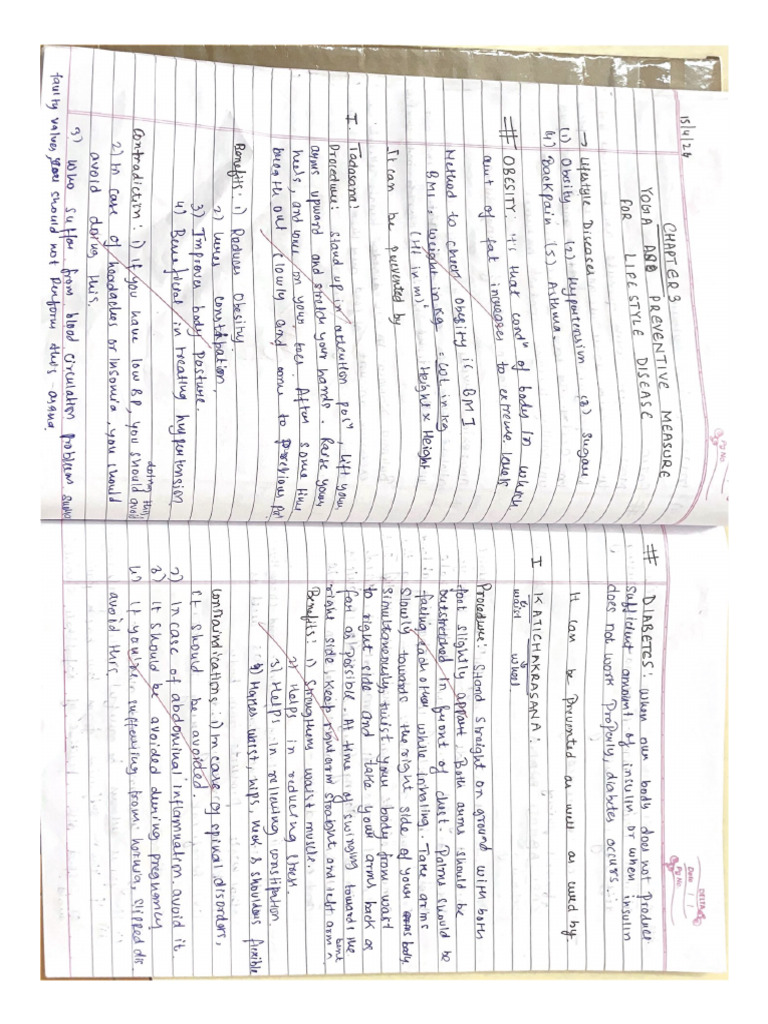 15/4/24
Pg No
CHAPTER 3
YOGA AS PREVENTIVE MEASURE
FOR LIFESTYLE DISEASE
→ Lifestyle Diseases
(1) Obesity (2) Hypertension (3) Sugar
(4) Backpain (5) Asthma.
# OBESITY: It is that condn of body in which
amt of fat increases to extreme levels
Method to check obesity is BMI
BMI = weight in kg = wt in kg
(Ht in m)² Height x Height
It can be prevented by
I. Tadasana:
Procedure: Stand up in attention posn, lift your
arms upward and stretch your hands. Raise your
heels, and are on your toes. After some time
breath out slowly and come to previous pos
Benefits: 1) Reduces Obesity.
2) Cures constipation,
3) Improves body Posture.
4) Beneficial in treating hypertension
Contradiction: 1) if you have low BP, you should avoid doing this
2) In case of headaches or insomia, you should
avoid doing this.
3) Who suffer from blood circulation problems
faulty valves, you should not perform this asana.
DELTA
Date / /
Pg No
# DIABETES: When our body does not produce
sufficient amount of insulin or when insulin
does not work properly, diabetes occurs.
It can be prevented as well as cured by:
I KATICHAKRASANA:
waist wheel
Procedure: Stand straight on ground with both
foot slightly appart. Both arms should be
outstretched in front of chest. Palms should be
facing each other while inhaling. Take arms
slowly towards the right side of your body.
Simultaneously, twist your body from waist
to right side and take your arms back as
far as possible. At time of swinging towards the
right side, keep right arm straight and left arm ^ bent
Benefits: 1) Strengthens waist muscle.
2) Helps in reducing stress.
3) Helps in relieving constipation
4) Makes waist, hips, neck & shoulders flexible
Contraindications: 1) In case of spinal disorders,
it should be avoided.
2) In case of abdominal inflammation avoid it.
3) It should be avoided during pregnancy
4) If you're suffering from hernia, slipped dis
avoid this.